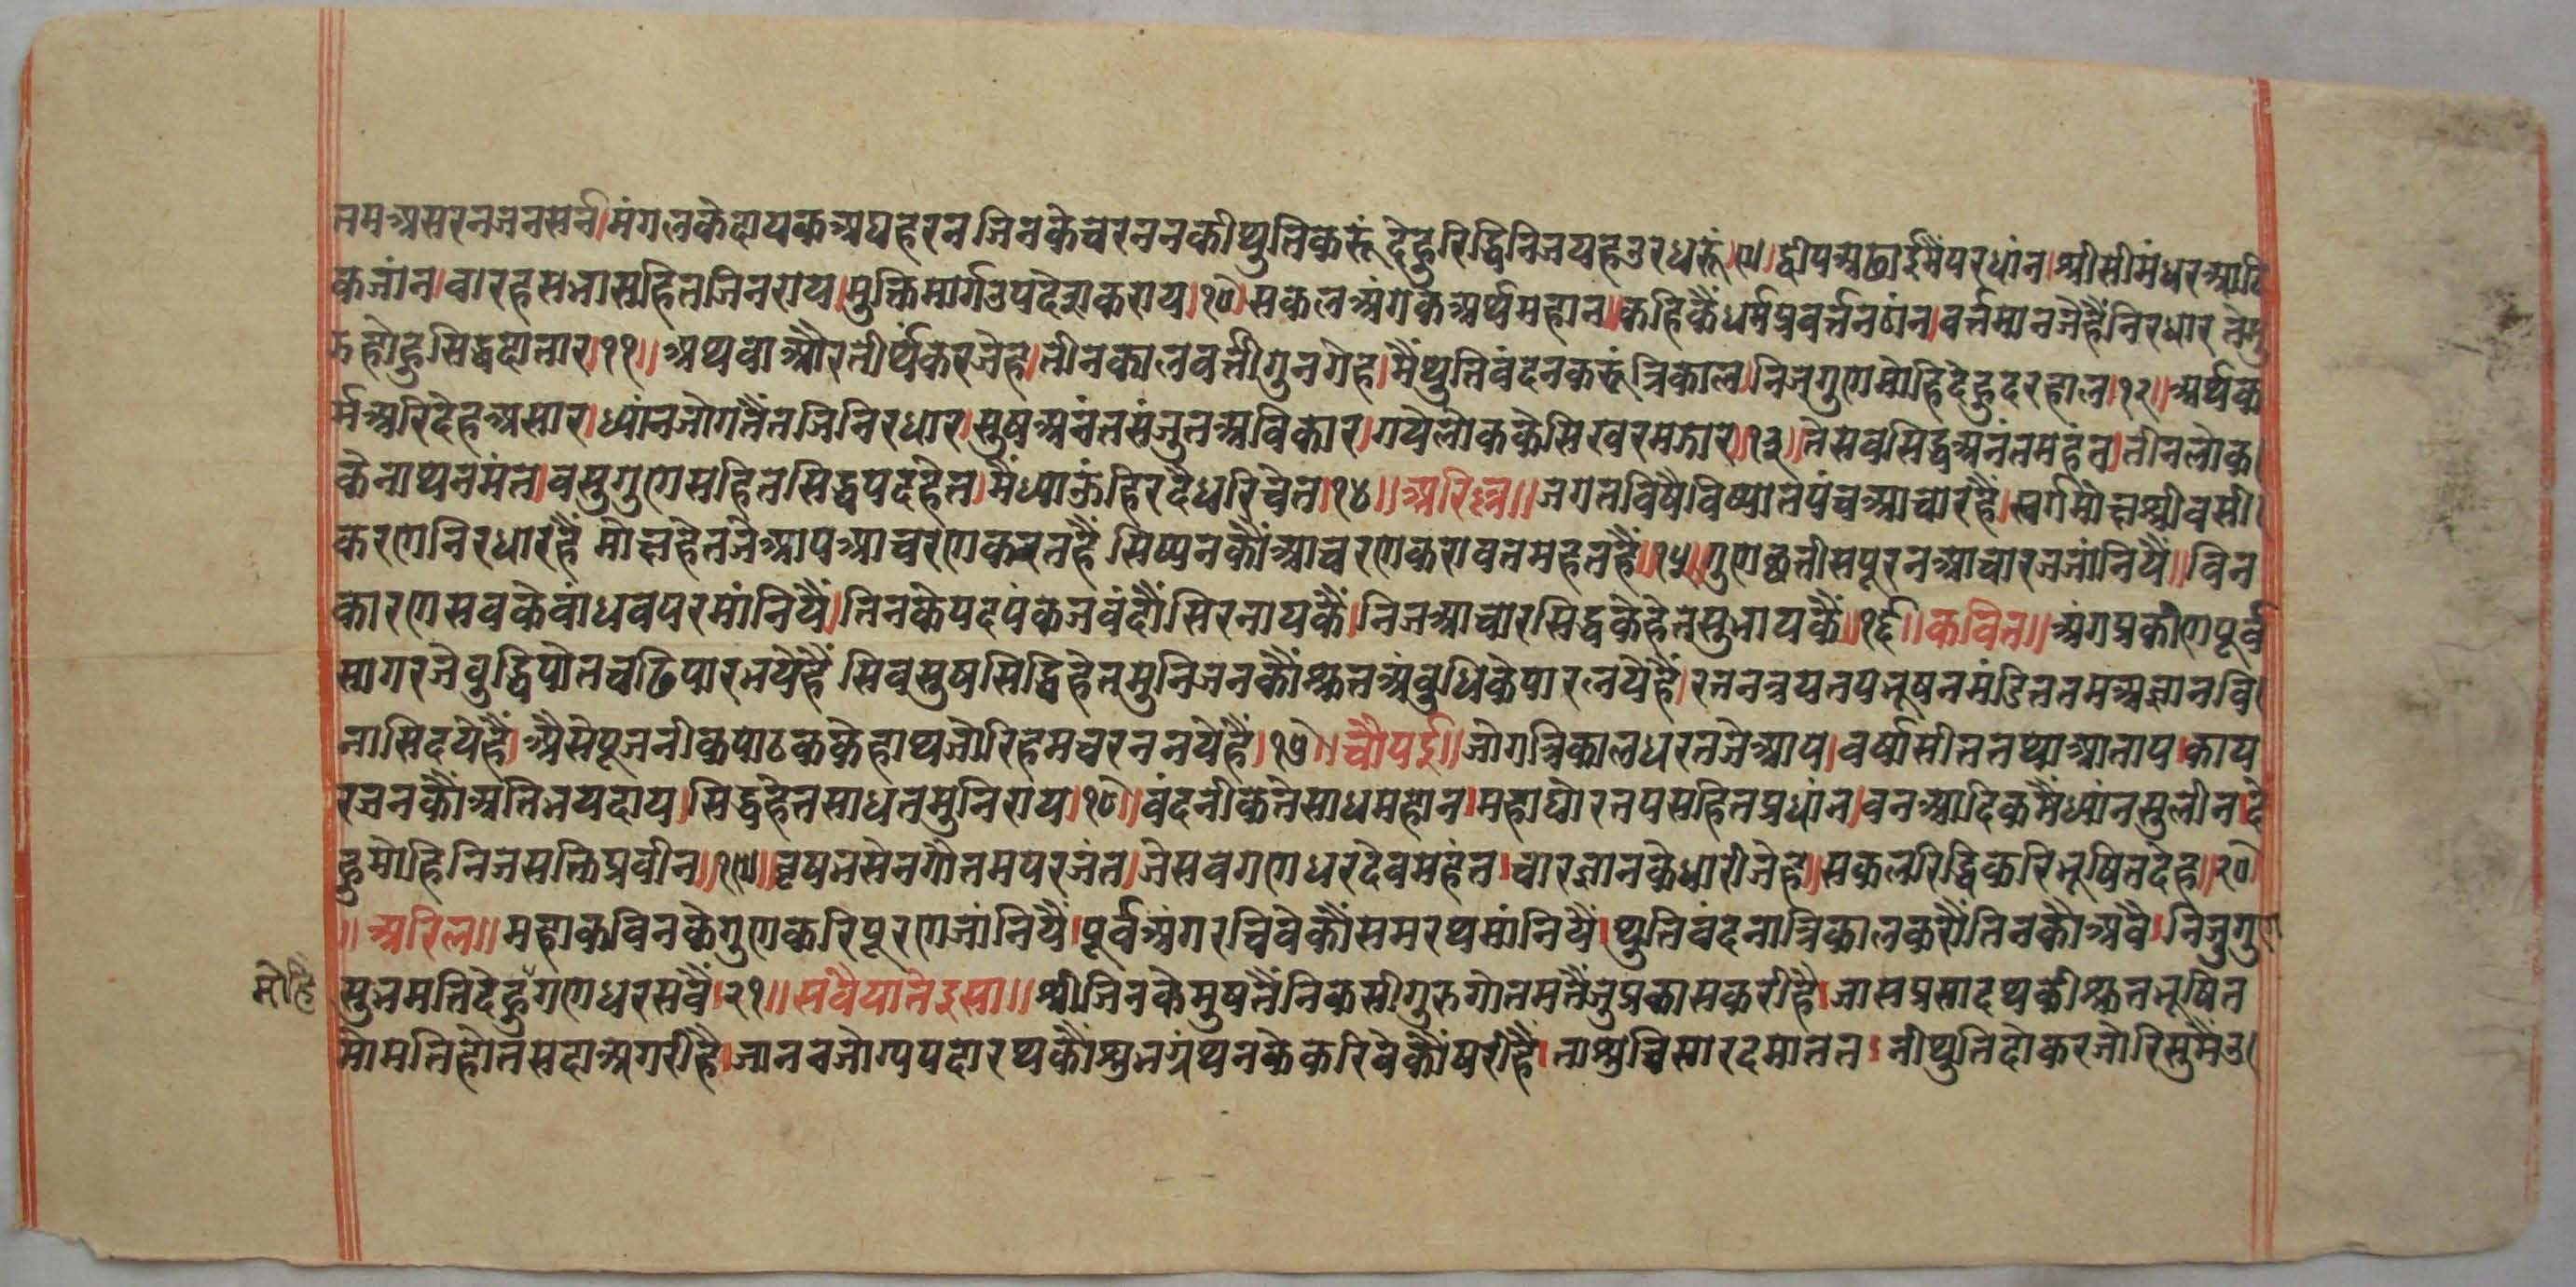 तमअसरनजनसर्न।मंगलकेदायकअघहरन जिनकेचरननकीथुतिकरूं देहुरिद्धिनिजयहउरधरूं।९। द्वीपअढाईमैंपरधांन।श्रीसीमंधरआदि
कजांन।वारहसभासहितजिनराय।मुक्तिमार्गउपदेशकराय।१०।सकलअंगकेअर्थमहान।कहिकैंधर्मप्रवर्त्तनठांन।वर्त्तमानजेहैंनिरधार तेमु
झहोहुसिद्धदातार।११।।अथवाऔरतीर्थंकरजेह।तीनकालवर्त्तीगुनगेह।मैंथुतिवंदनकरूंत्रिकाल।निजगुणमोहिदेहुदरहाल।१२।।अर्थक
र्मअरिदेहअसार।ध्यांनजोगतैंतजिनिरधार।सुषअनंतसंजुतअविकार।गयेलोककेसिखरमझार।१३।।तेसवसिद्धअनंतमहंत।तीनलोक
केनाथनमंत।वसुगुणसहितसिद्धपदहेत।मैंध्याऊंहिरदैधरिचेत।१४।।अरिल्ल।।जगतविषैविष्यातपंचआचारहैं।स्वर्गमोक्षश्रीवसी
करणनिरधारहैं मोक्षहेतजेआपआचरणकरतहैं सिष्यनकौंआचरणकरावतमहतहैं।।१५।गुणछत्तीसपूरनआचारजजांनियैं।।विन
कारणसवकेवांधवपरमांनियैं।तिनकेपदपंकजवंदौंसिरनायकैं।निजआचारसिद्धकेहेतुसुभायकैं।।१६।।कवित।।अंगप्रकीर्णपूर्व
सागरजेवुद्धिपोतचढिपारभयेहैं सिवसुषसिद्धिहेतुमुनिजनकौंश्रुतअंवुधिकेपारलयेहैं।रतनत्रयतपभूषनमंडिततमअज्ञानवि
नासिदयेहैं।अैसेपूजनीकपाठककेहाथजोरिहमचरननयेहैं।१७।।चौपई।।जोगत्रिकालधरतजेआप।वर्षासीततथाआताप।काय
रजनकौंअतिभयदाय।सिद्धहेतसाधतमुनिराय।१८।।वंदनीकतेसाधमहान।महाघोरतपसहितप्रधांन।वनआदिकमैंध्यांनसुलीन।दे
हुमोहिनिजसक्तिप्रवीन।।१९।।वृषभसेनगौतमपरजंत।जेसवगणधरदेवमहंत।चारज्ञानकेधारीजेह।।सकलरिद्धिकरिभूषितदेह।।२०
।।अरिल।।महाकविनकेगुणकरिपूरणजांनियैं।पूर्वअंगरचिवेकौंसमरथमांनियैं।थुतिवंदनात्रिकालकरौंतिनकौंअवै।निजगुण
मोहि
सुभमतिदेहुगणधरसवैं।२१।।सवैयातेइसा।।श्रीजिनकेमुषतैंनिकसीगुरुगोतमतैंजुप्रकासकरीहै।जासप्रसादथकीश्रुतभूषित
मोमतिहोतसदाअगरीहै।जानवजोग्यपदारथकौंश्रुतग्रंथनकेकरिवेकौंषरीहै।ताश्रुविसारदमाततनीथुतिदोकरजोरिसुमैंउ